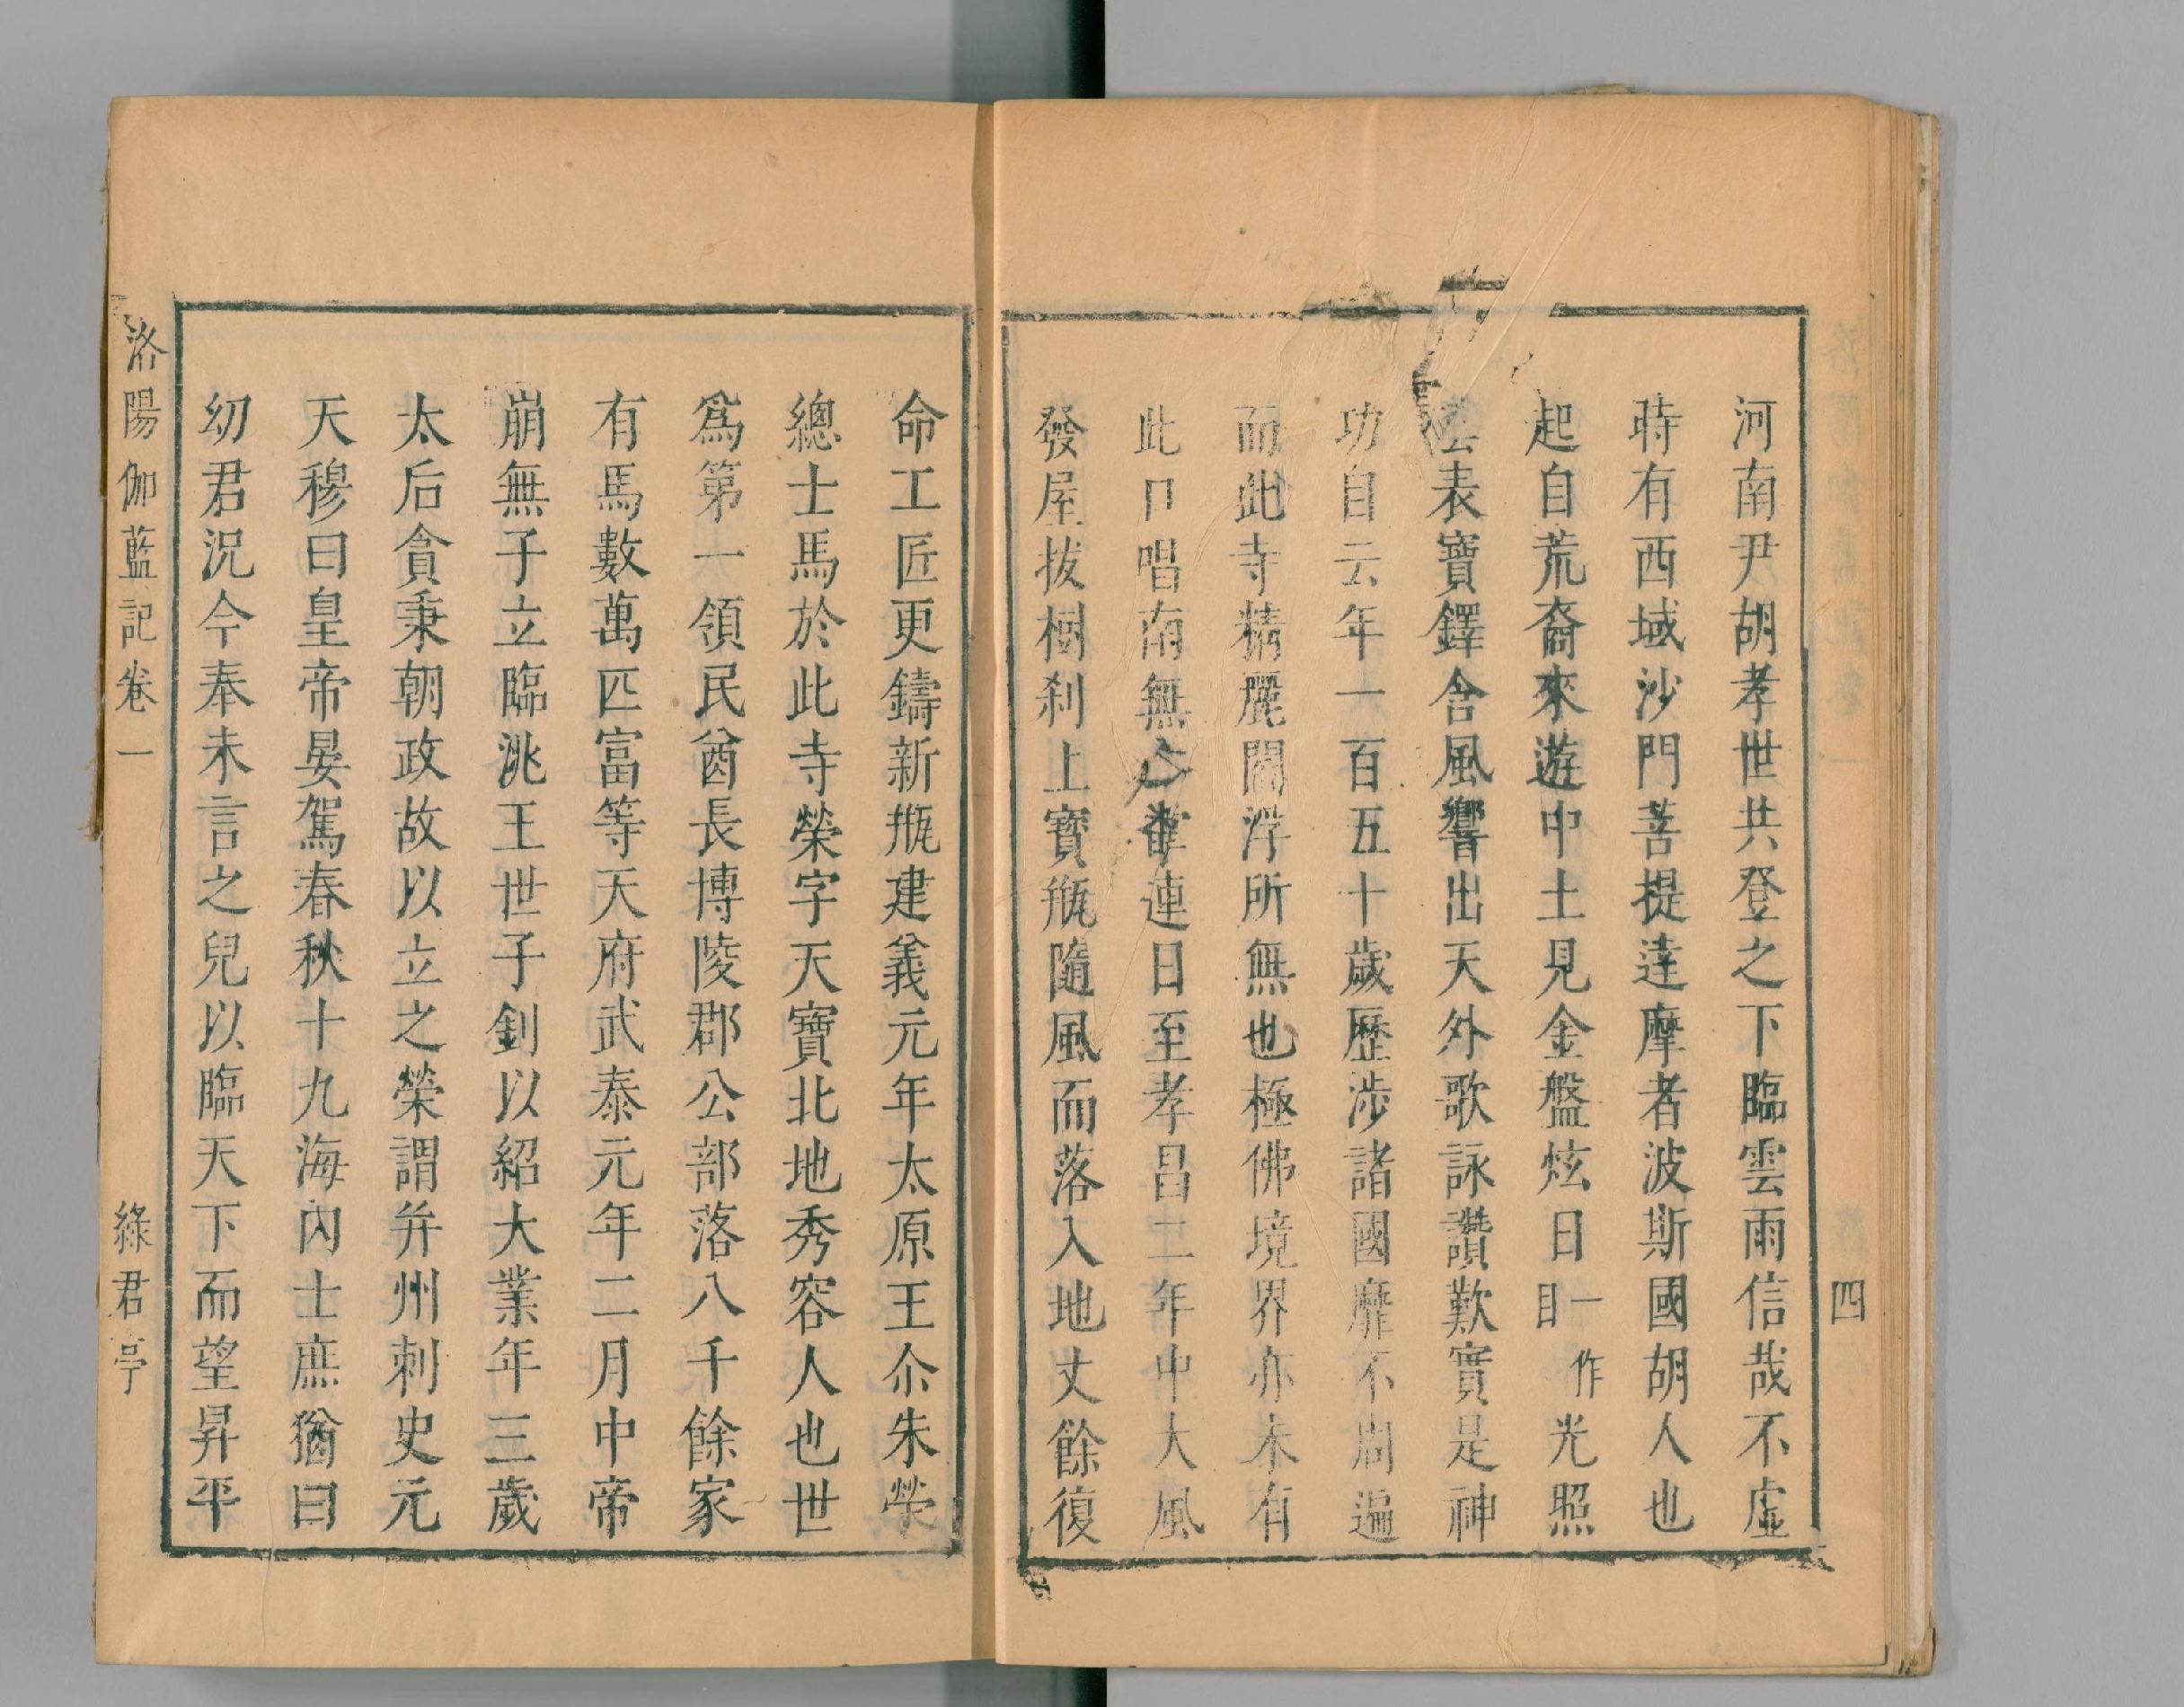 河南尹胡孝世共登之下臨雲雨信哉不虛
時有西域沙門菩提達摩者波斯國胡人也
起自荒裔來遊中土見金盤炫日一作目光照
雲表寶鐸含風響出天外歌詠讚歎實是神
功自云年一百五十歲歷涉諸國靡不周遍
而此寺精麗閻浮所無也極佛境界亦未有
此口唱南無合掌連日至孝昌二年中大風
發屋拔樹刹上寶瓶隨風而落入地丈餘復
四
命工匠更鑄新瓶建義元年太原王尒朱榮
總士馬於此寺榮字天寶北地秀容人也世
爲第一領民酋長博陵郡公部落八千餘家
有馬數萬匹富等天府武泰元年二月中帝
崩無子立臨洮王世子釗以紹大業年三歲
太后貪秉朝政故以立之榮謂并州刺史元
天穆曰皇帝晏駕春秋十九海內士庶猶曰
幼君況今奉未言之兒以臨天下而望昇平
洛陽伽藍記卷一
綠君亭